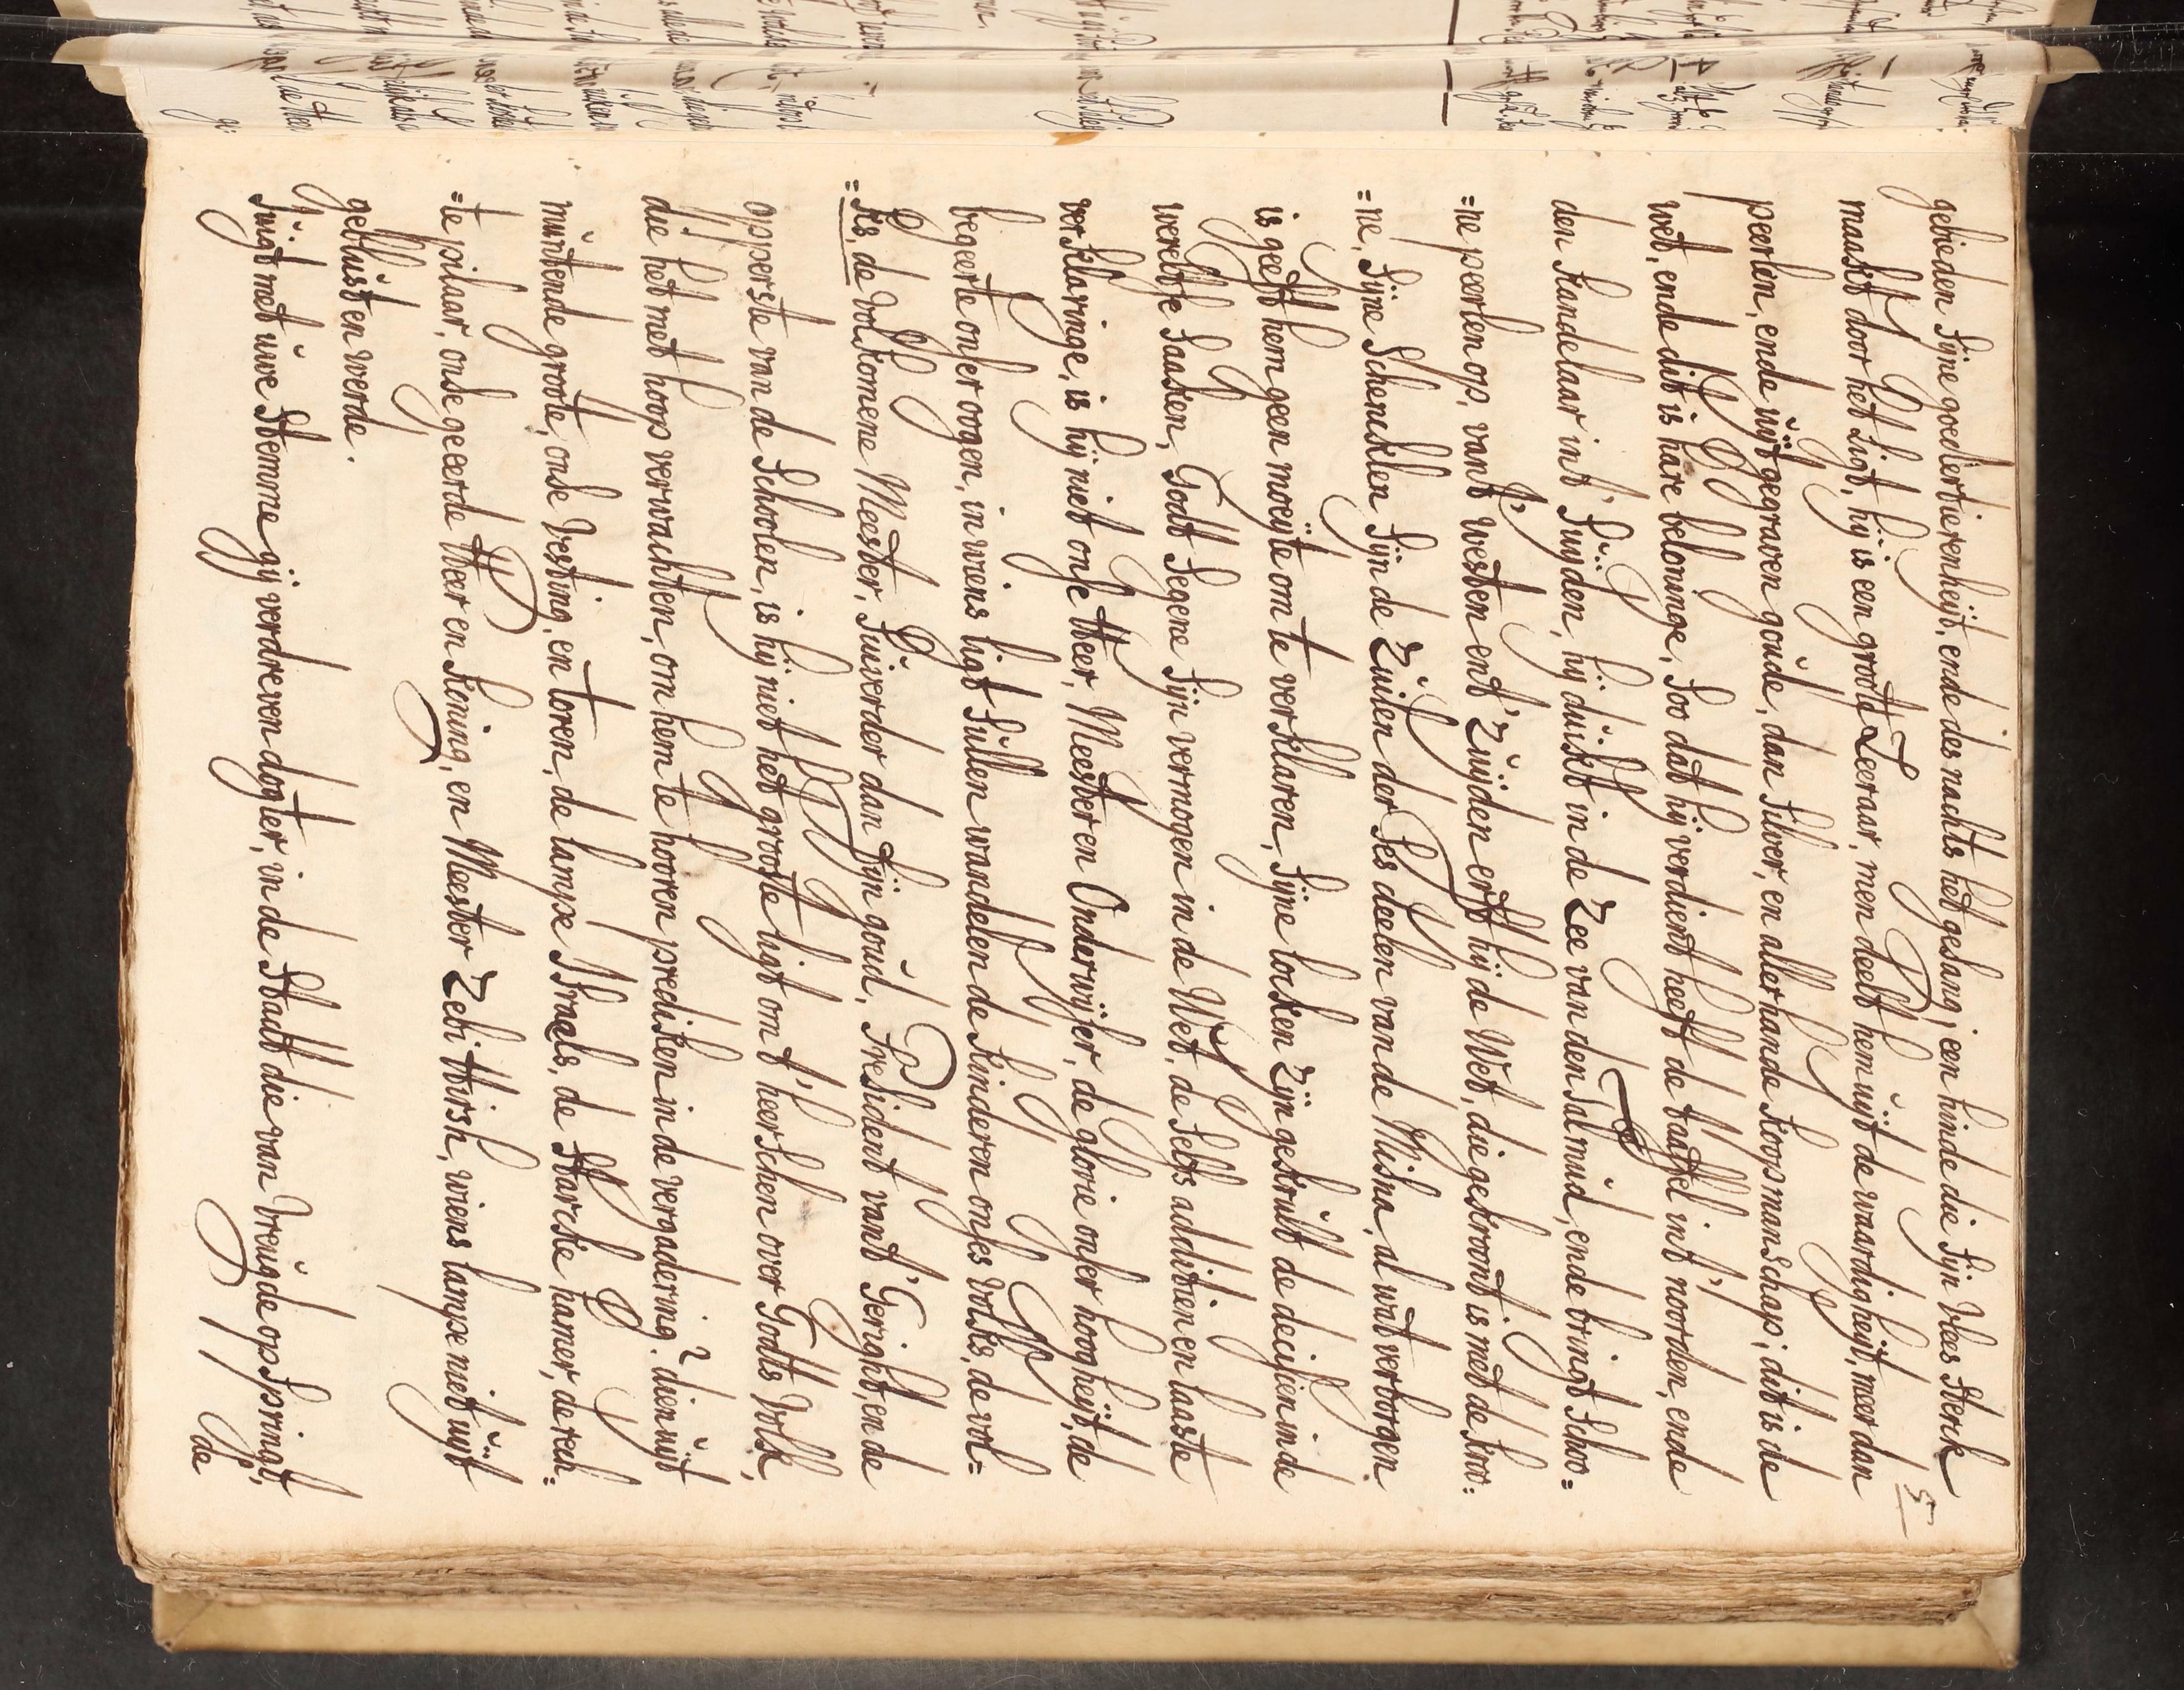 5
gebieden Sijne goedertierenheijt, ende des nachts het gesang; een hinde die Sijn Vlees Sterk
maakt door het Ligt, hij is een groote Leeraar, men deelt hem uijt de waardigheijt, meer dan
peerlen, ende uijtgegraven goude, dan Silver, en allerhande Koopmanschap; dit is de
wet, ende dit is hare beloninge, Soo dat hij verdient heeft de taaffel int' noorden, ende
den Kandelaar int' Suijden, hij duikt in de Zee van den Talmud, ende bringt Scho=
=ne peerlen op, vant' westen ent' Zuijden erft hij de Wet, die gekroont is met de kro=
=ne, Sijne Schenklen Sijn de Zuilen der Ses deelen van de Misna, al wat verborgen
is geeft hem geen moeijte om te verklaren, Sijne locken Zijn gekrult de decisien in de
wereltse Saaken, Godt Segene Sijn vermogen in de Wet, de Selfs additien en laaste
verklaringe, is hij niet onse Heer, Meester en Onderwijser, de glorie onser hoogheijt, de
begeerte onser oogen, in wiens ligt Sullen wandelen de Kinderen onses Volks, de vol=
=ks, de Volkomene Meester, Suiverder dan fijn goud, President vant' Geright, en de
opperste van de Schoolen, is hij niet het grootste ligt om t' heerschen over Godts Volk,
die het met hoop verwachten, om hem te hooren prediken in de vergadering? dien uijt
muntende groote, onse Vesting, en toren, de lampe Israels, de Starcke hamer, de regh=
=te pilaar, onse geeerde Heer en Koning, en Meester Zebi Hirsh, wiens lampe niet uijt
geblust en werde.
Juigt met uwe Stemme gij verdreven dogter, in de Stadt die van Vreugde opspringt,
de